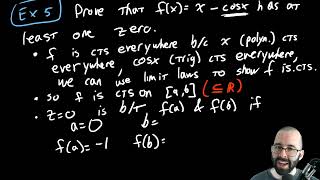 Ex 5 Prove that f(x) = x - cosx has at
least one zero.
• f is cts everywhere b/c x (polyn.) cts
everywhere, cosx (trig) cts everywhere,
we can use limit laws to show f is cts.
• so f is cts on [a,b] (⊆ℝ)
• z=0 is b/t f(a) & f(b) if
a=0 b=
f(a)=-1 f(b)=